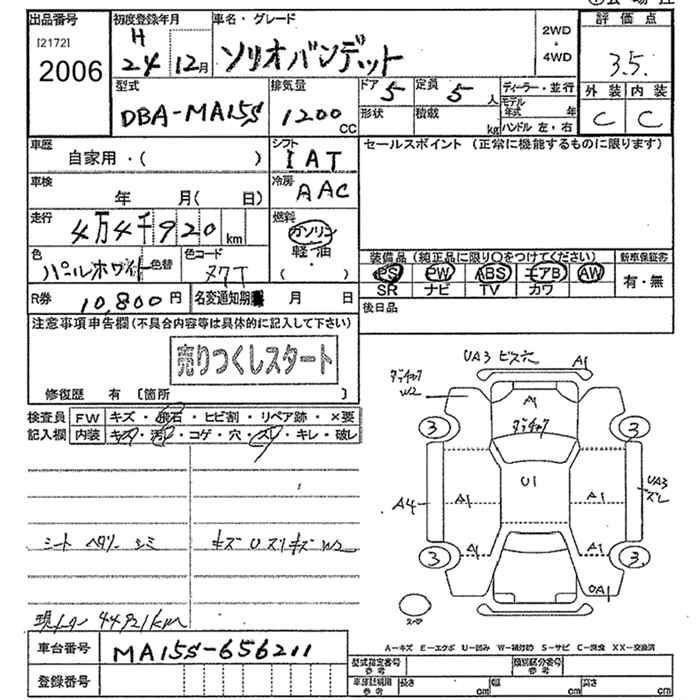 出品番号 初度登録年月 車名・グレード 評価点
[2172]
2006
H
24 12月 ソリオバンデット
2WD
・
4WD
3.5.
型式 排気量 ドア 5 定員 5 人 ディーラー・並行 外装 内装
DBA-MA15S 1200 CC
形状 積載 kg モデル年式 年
ハンドル 左・右
C C
車歴 シフト セールスポイント (正常に機能するものに限ります)
自家用・( ) IAT
車検 冷房
年 月( 日) AAC
走行 燃料
4万4千920 km ガソリン
軽・油
・
( )
色 色替 色コード
パールホワイト ZVT
装備品 (純正品に限り〇をつけてください) 新車保証書
PS PW ABS エアB AW 有・無
SR ナビ TV カワ
R券 10,800円 名変通知期 月 日 後日品
注意事項申告欄(不具合内容等は具体的に記入して下さい)
売りつくしスタート
修復歴 有 [箇所 ]
検査員 FW キズ・飛石・ヒビ割・リペア跡・×要
記入欄 内装 キズ・汚・コゲ・穴・スレ・キレ・破レ
シート ヘタリ シミ キズ U スリキズ W2
現メーター 44921km
車台番号 MA15S-656211
登録番号
UA3 ビス穴 A1
タッチアップ
W2
A1
タッチアップ
3 3
U1
A4 A1 A1 UA3
スレ
A1 A1
3 3.
UA1
スペア
A−キズ E−エクボ U−凹み W−補修跡 S−サビ C−腐食 XX−交換済
型式指定番号 参考 類別区分番号 参考
長さ cm 幅 cm 高さ cm